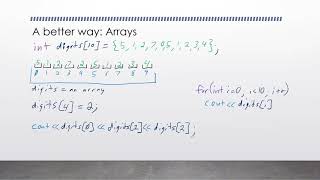 A better way: Arrays
int digits[10] = {5,1,2,7,8,5,1,2,3,4};
0 1 2 3 4 5 6 7 8 9
digits = an array
for(int i=0; i<10; i++)
digits[4] = 2;
cout << digits[i]
cout << digits[0] << digits[1] << digits[2];